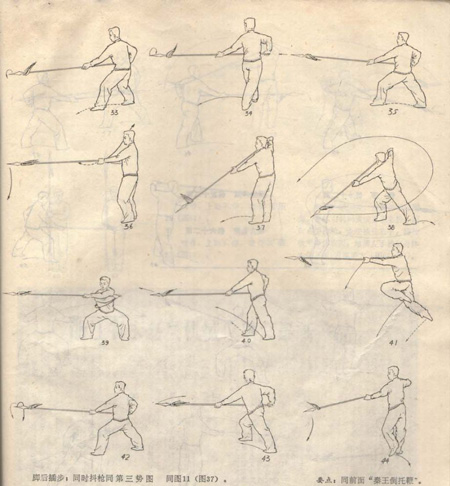 33
34
35
36
37
38
39
40
41
42
43
44
脚后插步;同时抖枪同第三势图 同图11(图37)。
要点:同前面“秦王倒托靶”。